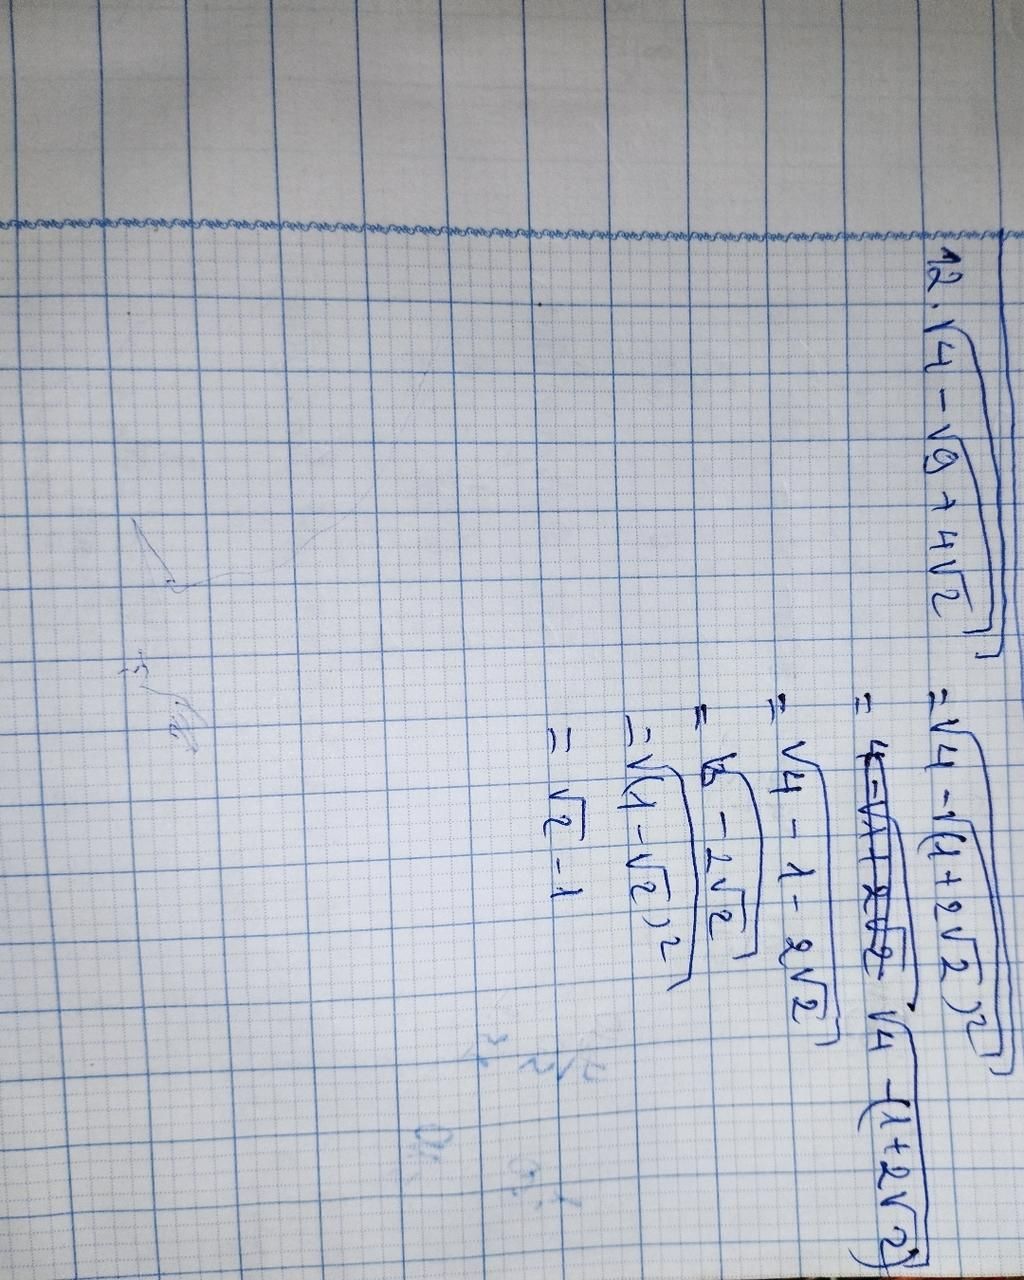 12. √(4 - √(9 + 4√2)) = √(4 - √((1 + 2√2)²))
= 4 - √1 + 2√2 √(4 - (1 + 2√2))
= √(4 - 1 - 2√2)
= √(3 - 2√2)
= √((1 - √2)²)
= √2 - 1